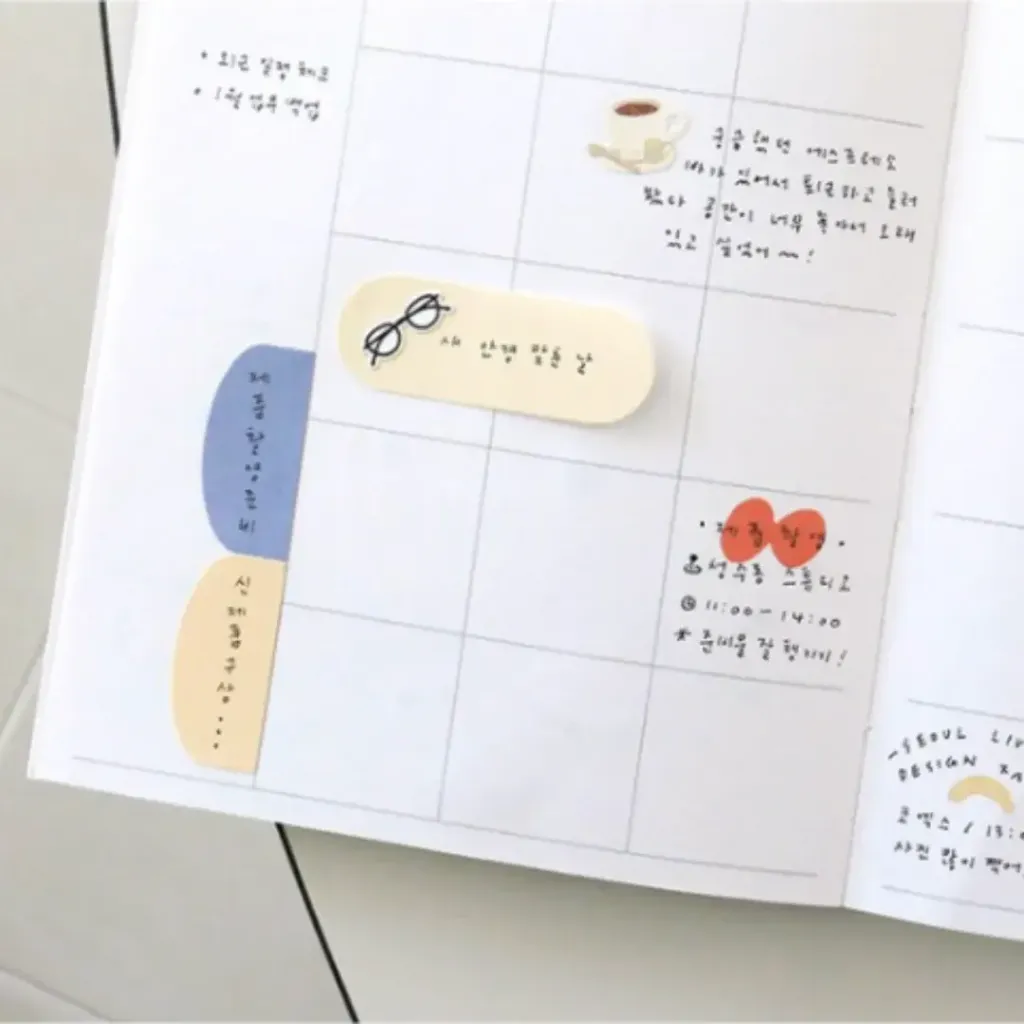 • 퇴근 일정 체크
• 1월 업무 백업
궁금했던 에스프레소
바가 있어서 퇴근하고 들러
봤다 공간이 너무 좋아서 오래
있고 싶었어 ~~!
새 안경 맞춘 날
제품촬영준비
신제품구상...
• 제품촬영 •
성수동 스튜디오
11:00 - 14:00
* 준비물 잘 챙기기!
SEOUL LIV
DESIGN FA
코엑스 / 13:0
사진 많이 찍어